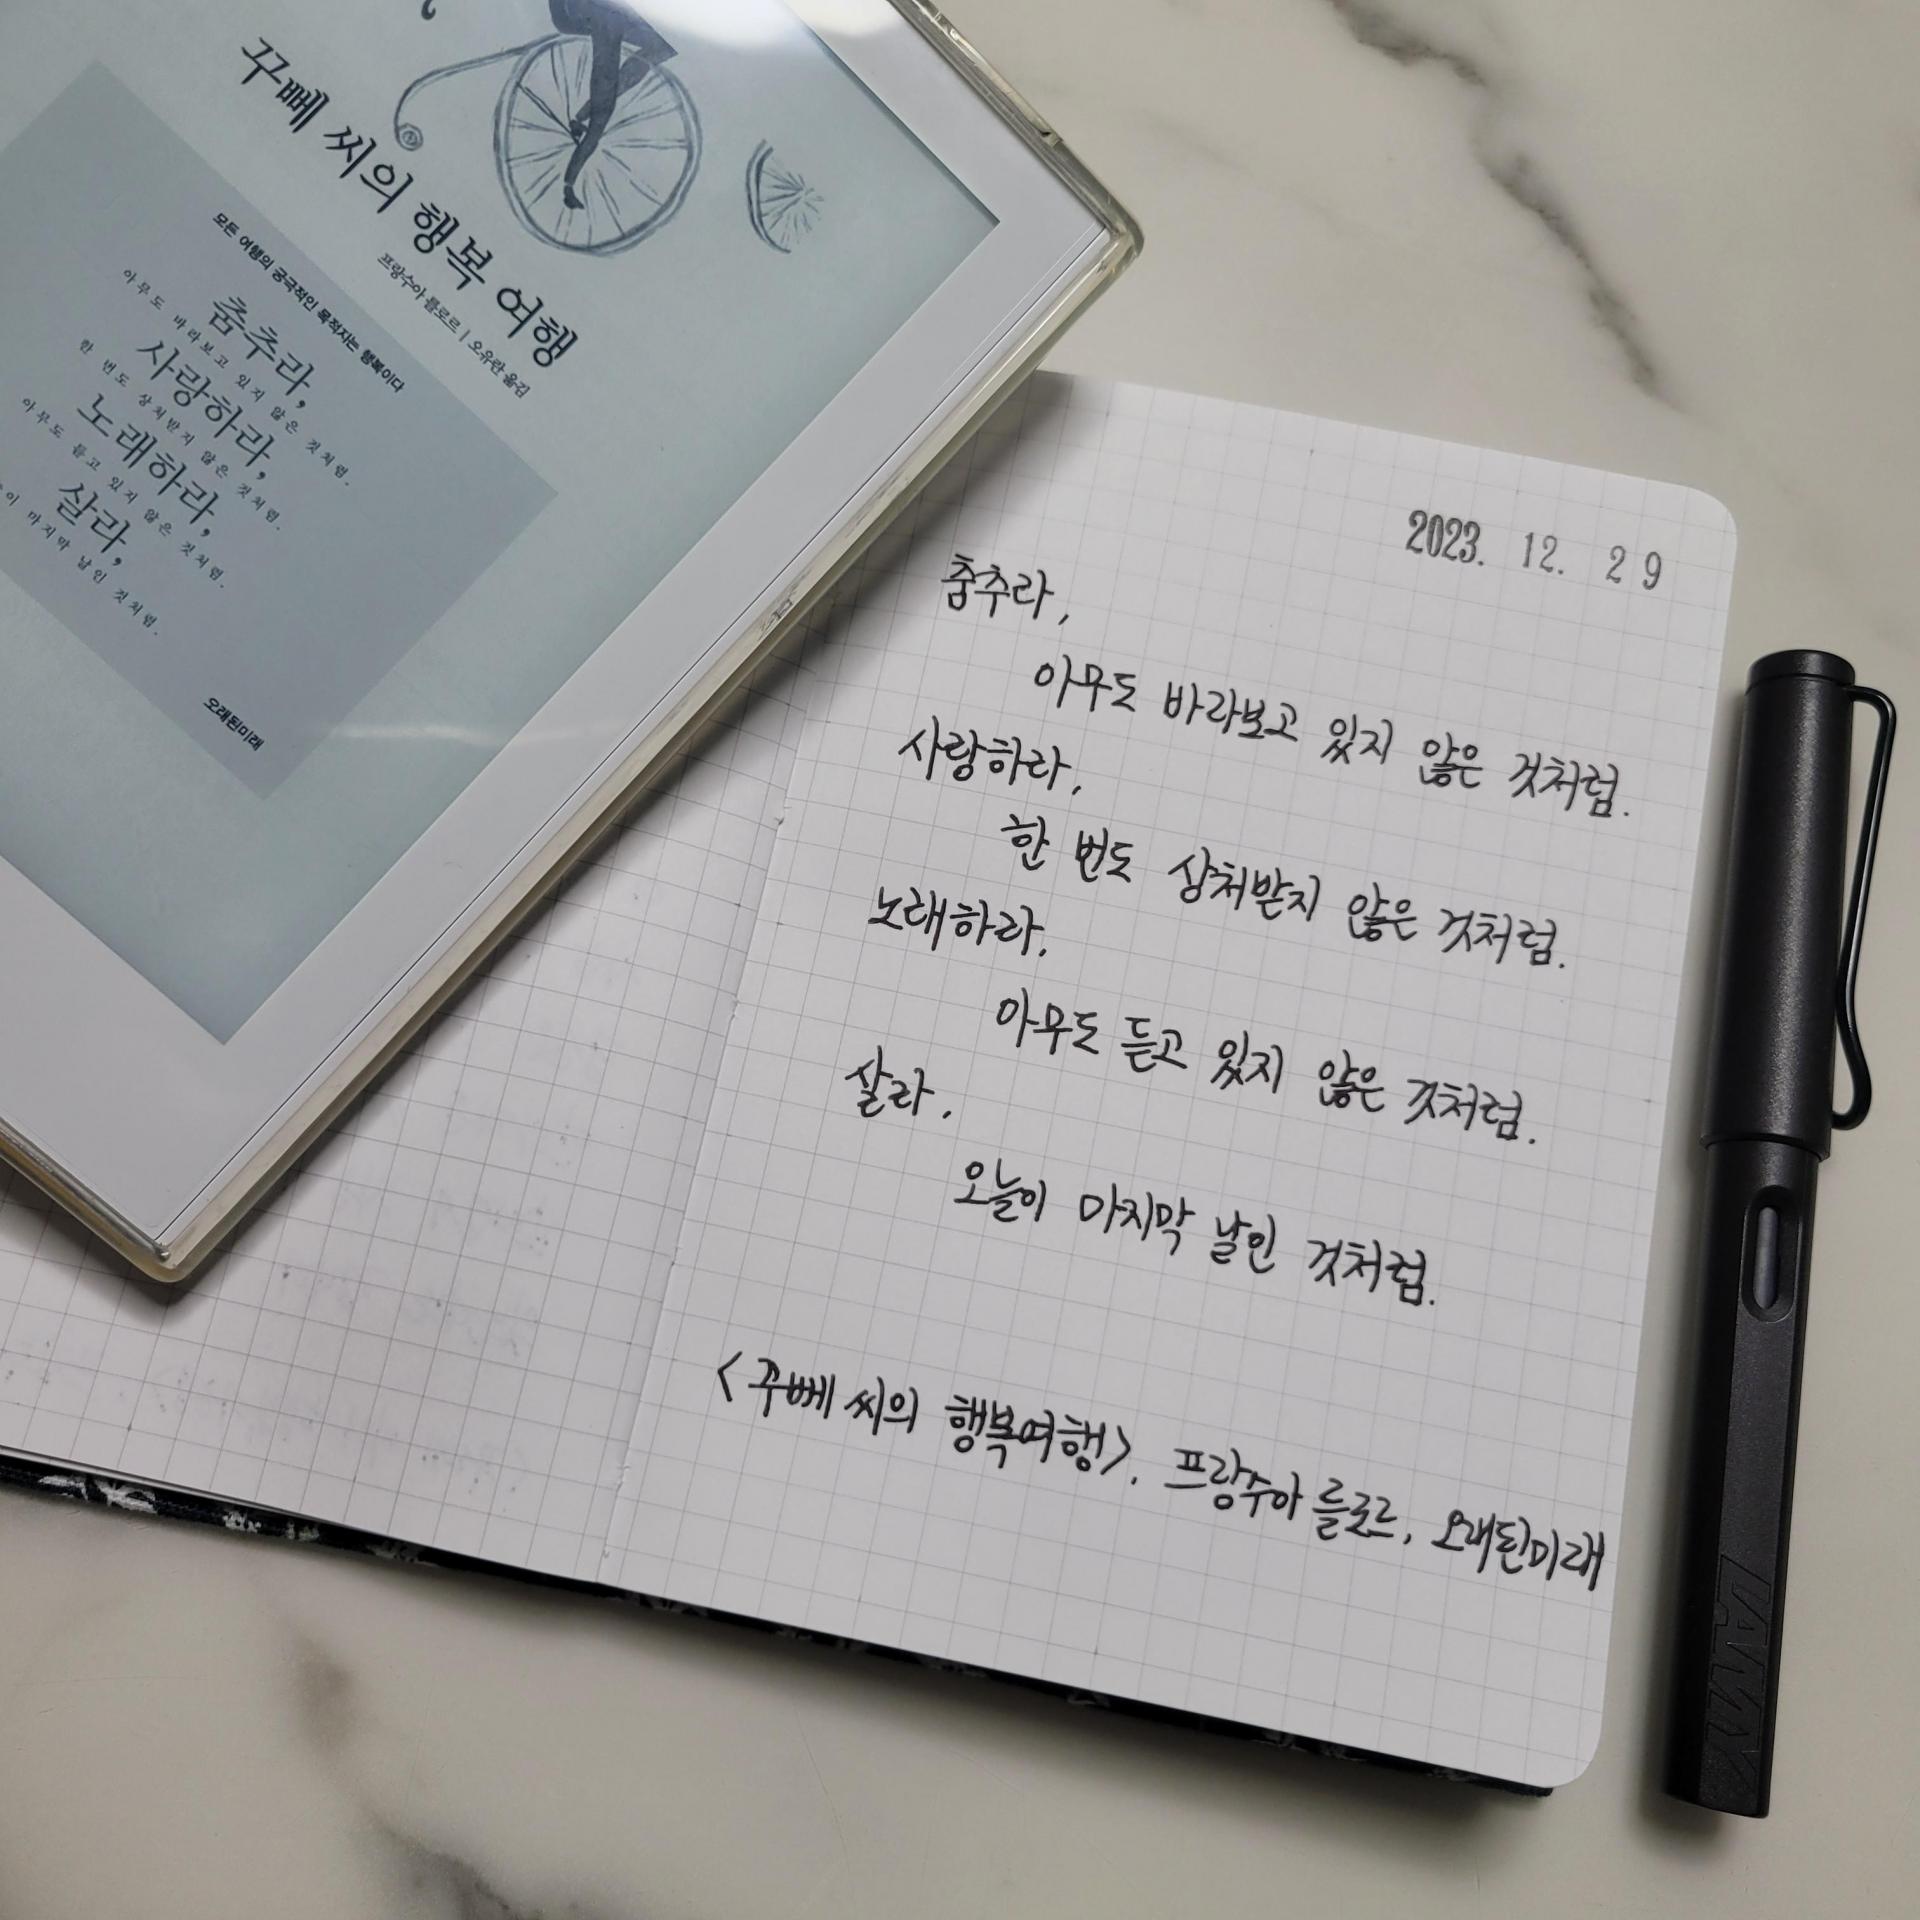 꾸뻬 씨의 행복 여행
프랑수아 를로르 | 오유란 옮김
모든 여행의 궁극적인 목적지는 행복이다
춤추라,
아무도 바라보고 있지 않은 것처럼.
사랑하라,
한 번도 상처받지 않은 것처럼.
노래하라,
아무도 듣고 있지 않은 것처럼.
살라,
마지막 날인 것처럼.
오래된미래
2023. 12. 29
춤추라,
아무도 바라보고 있지 않은 것처럼.
사랑하라,
한 번도 상처받지 않은 것처럼.
노래하라,
아무도 듣고 있지 않은 것처럼.
살라,
오늘이 마지막 날인 것처럼.
<꾸뻬 씨의 행복여행>, 프랑수아 를로르, 오래된미래
LAMY